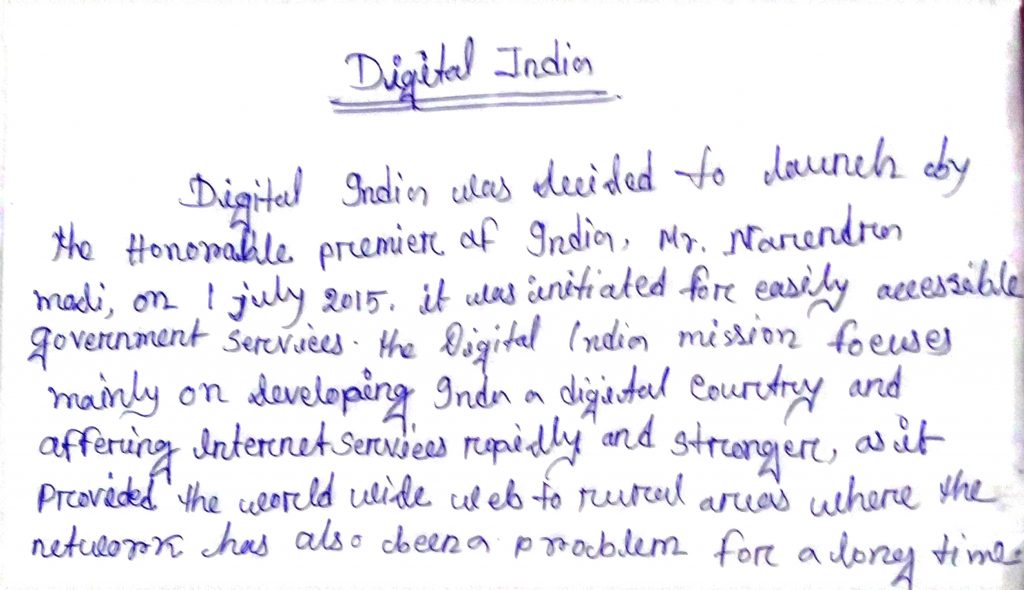 Digital India
Digital India was decided to launch by
the Honorable premier of India, Mr. Narendra
modi, on 1 july 2015. it was initiated for easily accessible
government services. the Digital India mission focuses
mainly on developing India a digital Country and
affering Internet services rapidly and stronger, as it
Provided the world wide web to rural areas where the
network has also been a problem for a long time.